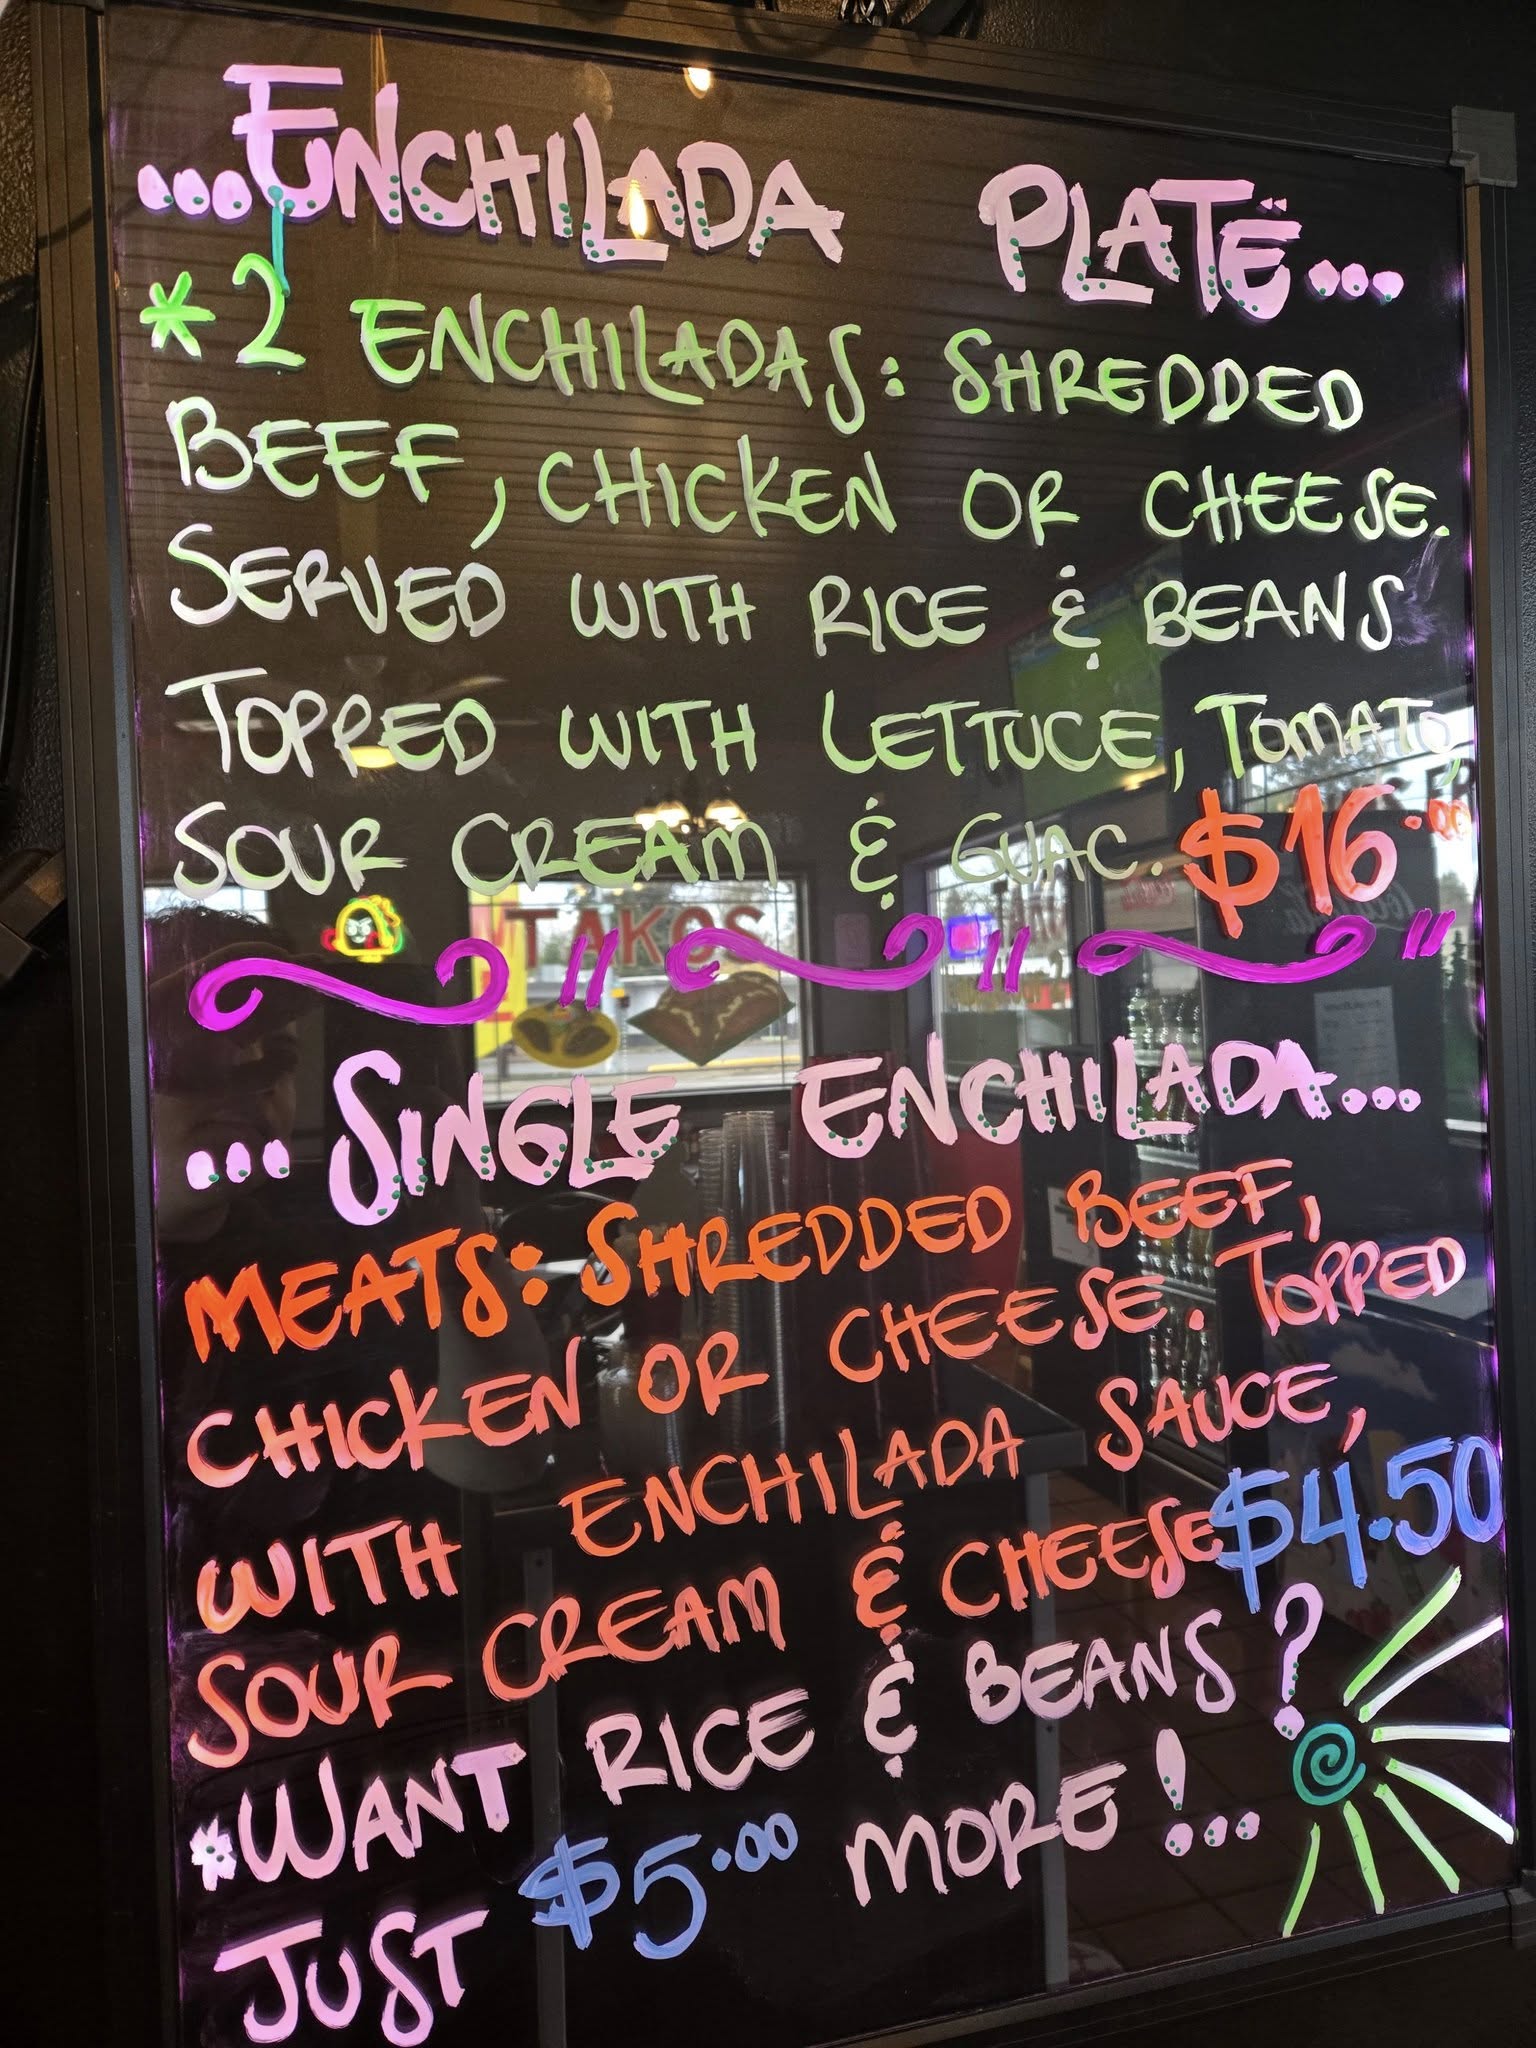 ...ENCHILADA PLATE...
*2 ENCHILADAS: SHREDDED
BEEF, CHICKEN OR CHEESE.
SERVED WITH RICE & BEANS
TOPPED WITH LETTUCE, TOMATO,
SOUR CREAM & GUAC. $16.00
TAKOS
...SINGLE ENCHILADA...
MEATS: SHREDDED BEEF,
CHICKEN OR CHEESE. TOPPED
WITH ENCHILADA SAUCE,
SOUR CREAM & CHEESE $4.50
*WANT RICE & BEANS?
JUST $5.00 MORE!...